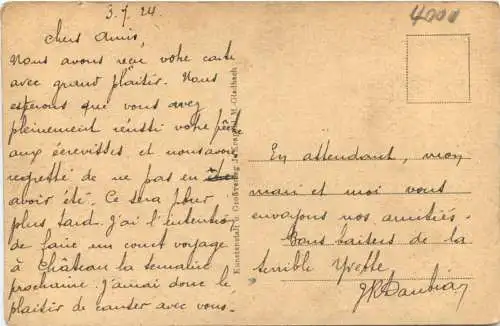 3.7.24
4000
Chers Amis,
Nous avons reçu votre carte
avec grand plaisir. Nous
esperons que vous avez
pleinement réussi votre pêche
aux écrevisses et nous avons
regretté de ne pas en
avoir été. Ce sera pour
plus tard. J'ai l'intention
de faire un court voyage
à Château la semaine
prochaine. J'aurai donc le
plaisir de causer avec vous.
Kunstanstalt u. Großverlag M.-Gladbach
En attendant, mon
mari et moi vous
envoyons nos amitiés.
Bons baisers de la
terrible Yvette